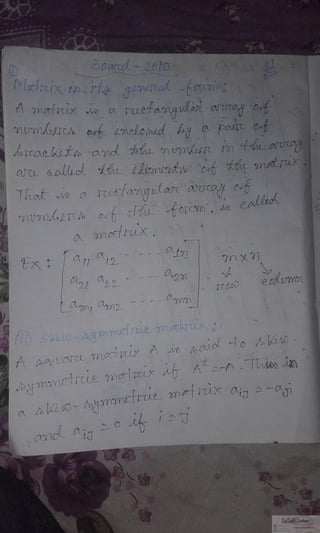 Board - 2010
(i)
Matrix in its general form:
A matrix is a rectangular array of
numbers of enclosed by a pair of
brackets and the numbers in the array
are called the elements of the matrix.
That is a rectangular array of
numbers of the form, is called
a matrix.
Ex: [ a11 a12 ----- a1n
a21 a22 ---- a2n
am1 am2 ---- amn ] m×n
row column
(ii) Skew-symmetric matrix:
A square matrix A is said to skew-
symmetric matrix if Aᵗ=-A. Thus in
a skew-symmetric matrix aij = -aji
and aij = 0 if i=j